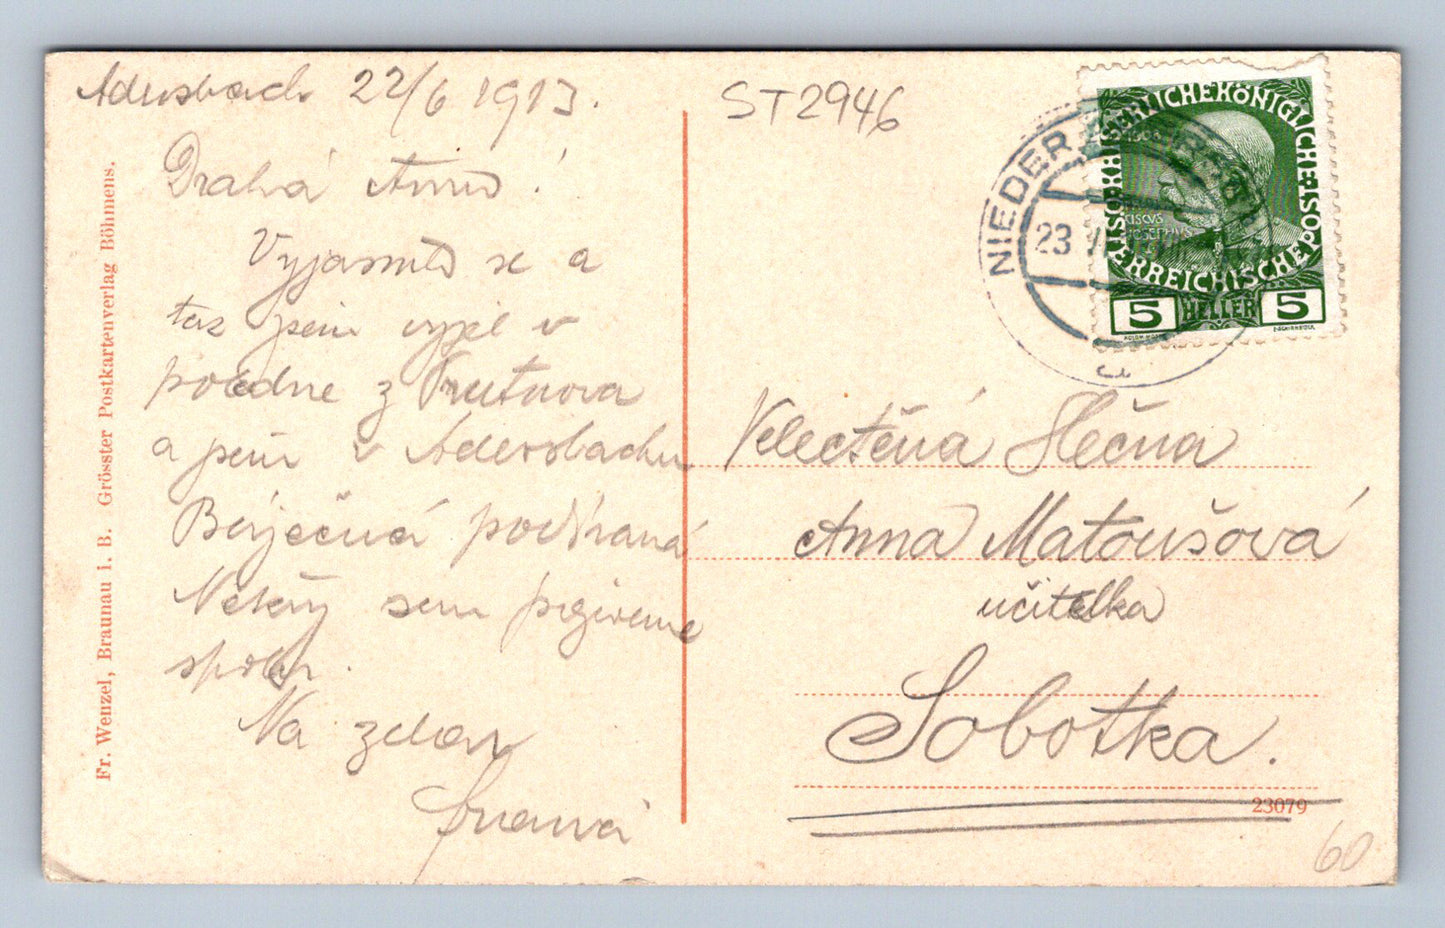 Adersbach 22/6 1913.
ST2946
Drahá Anno!
Vyjasnilo se a
tak jsem vyjel v
poledne z Trutnova
a jsem v Adersbachu
Báječná podívaná
Někdy sem přijdeme
spolu.
Na zdar
Fr. Wenzel, Braunau i. B. Grösster Postkartenverlag Böhmens.
KAISERLICHE KÖNIGLICHE POST
ÖSTERREICHISCHE
1908
CISCVS
IOSEPHVS
5 HELLER 5
NIEDER
23
Velectěná Slečna
Anna Matoušová
učitelka
Sobotka.
23079
60